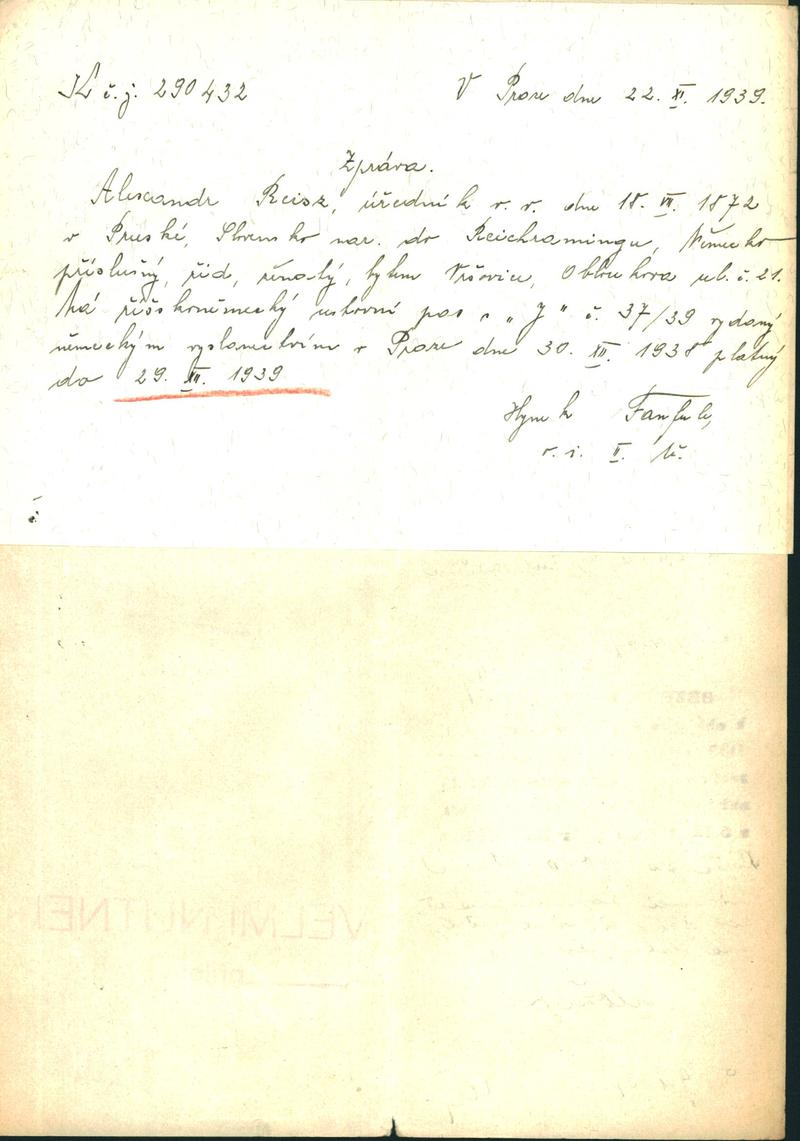 K č. j. 290432 V Praze dne 22. XI. 1939.
Zpráva.
Alexandr Reisz, úředník v. v. dne 18. VII. 1872
v Pruské, Slovensko nar. do Reichramingu, Německo
příslušný, žid, ženatý, bytem Vršovice, Oblouková ul. č. 21.
Má říšskoněmecký cestovní pas s „J“ č. 37/39 vydaný
německým vyslanectvím v Praze dne 30. XII. 1938 platný
do 29. XII. 1939
Hynek
II.
VELMI NUTNÉ